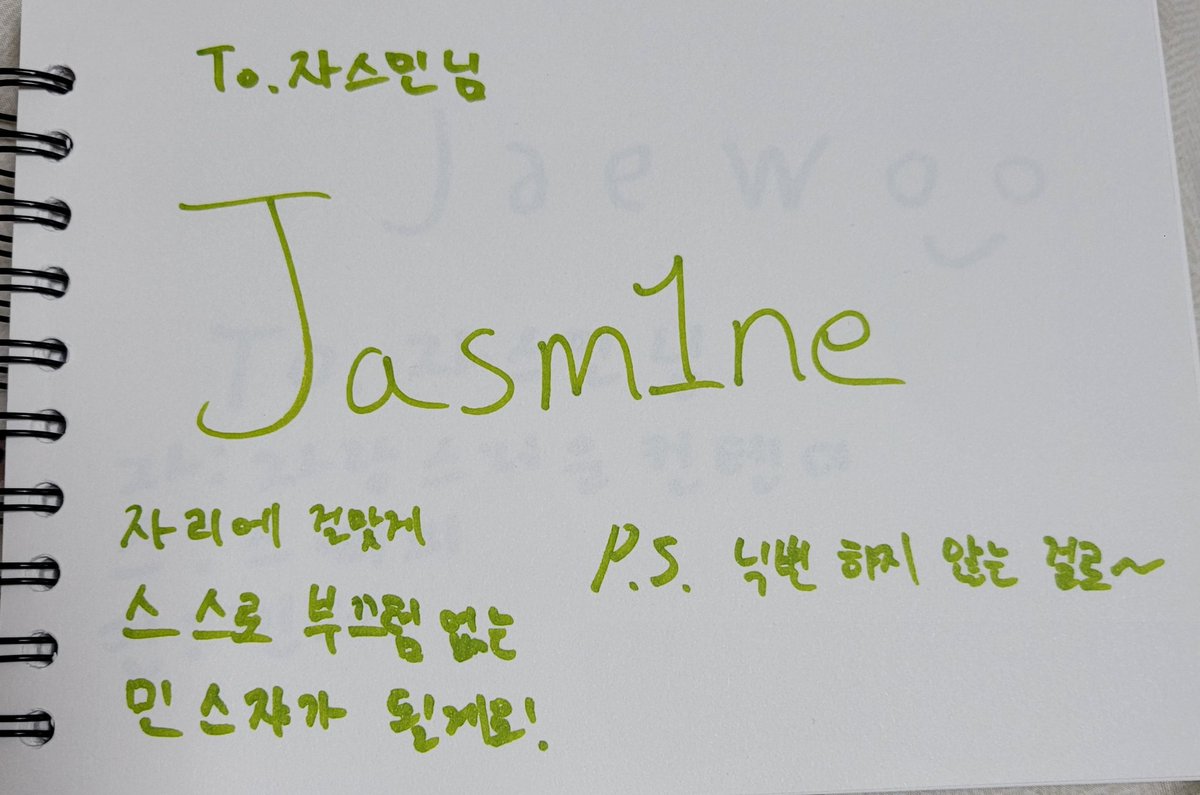 To. 자스민님
Jaewoo
Jasm1ne
자리에 걸맞게
스스로 부끄럼 없는
민스쟈가 될게요!
P.S. 닉변 하지 않는 걸로~